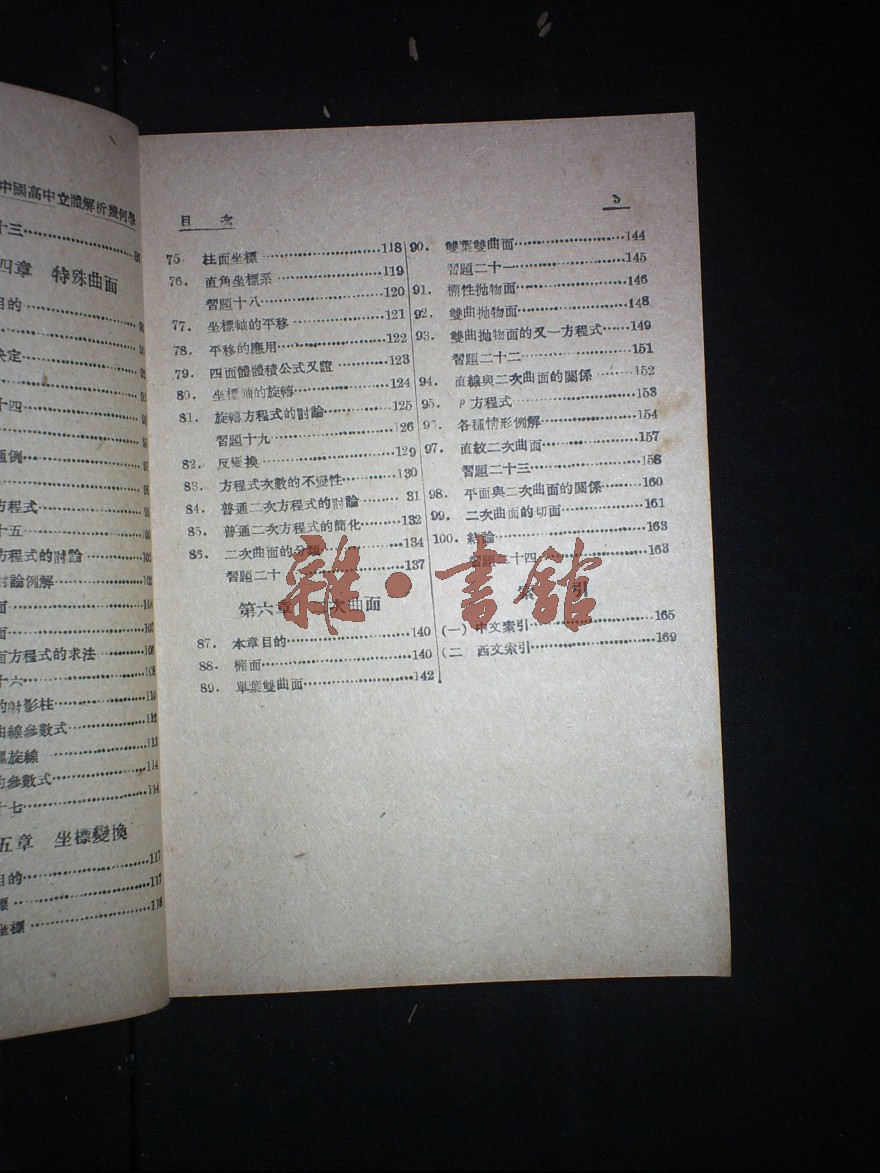 中國高中立體解析幾何學
十三
四章 特殊曲面
目的
決定
十四
通例
方程式
十五
方程式的討論
討論例解
面
面
面方程式的求法 106
十六 108
的射影柱 110
曲線參數式 112
螺旋線 113
的參數式 114
十七 114
五章 坐標變換
目的 117
標 117
坐標 118
目 次
75. 柱面坐標 118
76. 直角坐標系 119
習題十八 120
77. 坐標軸的平移 121
78. 平移的應用 122
79. 四面體體積公式又證 123
80. 坐標軸的旋轉 124
81. 旋轉方程式的討論 125
習題十九 126
82. 反變換 129
83. 方程式次數的不變性 130
84. 普通二次方程式的討論 31
85. 普通二次方程式的簡化 132
86. 二次曲面的分類 134
習題二十 137
第六章 次曲面
87. 本章目的 140
88. 橢面 140
89. 單葉雙曲面 142
90. 雙葉雙曲面 144
習題二十一 145
91. 橢性拋物面 146
92. 雙曲拋物面 148
93. 雙曲拋物面的又一方程式 149
習題二十二 151
94. 直線與二次曲面的關係 152
95. ρ方程式 153
各種情形例解 154
97. 直紋二次曲面 157
習題二十三 158
98. 平面與二次曲面的關係 160
99. 二次曲面的切面 161
100. 結論 163
習題二十四 163
索 引
(一) 中文索引 165
(二 西文索引 169
雜·書舘